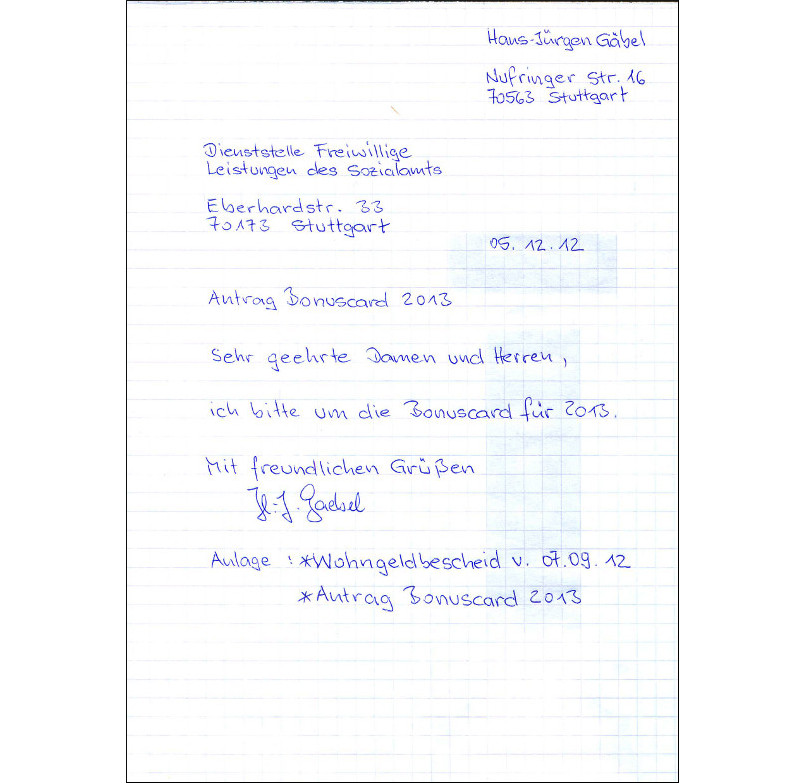 Hans-Jürgen Gäbel
Nufringer Str. 16
70563 Stuttgart
Dienststelle Freiwillige
Leistungen des Sozialamts
Eberhardstr. 33
70173 Stuttgart
05. 12. 12
Antrag Bonuscard 2013
Sehr geehrte Damen und Herren,
ich bitte um die Bonuscard für 2013.
Mit freundlichen Grüßen
H.-J. Gaebel
Anlage : *Wohngeldbescheid v. 07.09. 12
*Antrag Bonuscard 2013